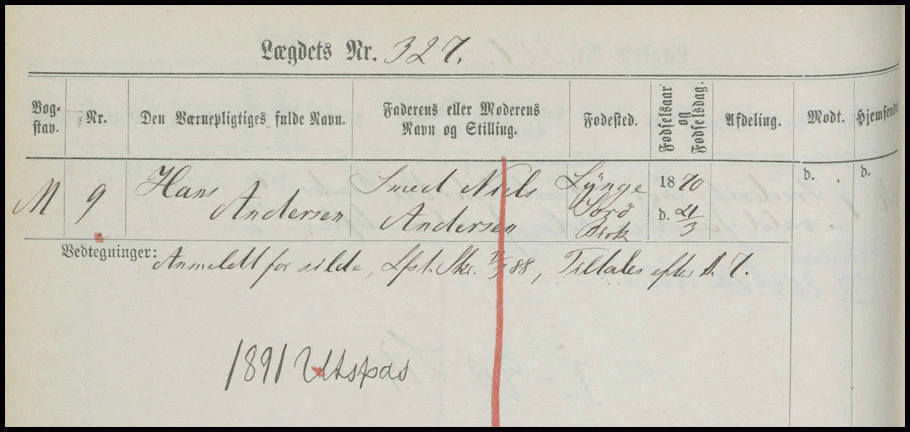 Lægdets Nr. 327.
Bog-
stav. Nr. Den Værnepligtiges fulde Navn. Faderens eller Moderens
Navn og Stilling. Fødested. Fødselsaar
og
Fødselsdag. Afdeling. Modt. Hjemsendt
M 9 Hans
Andersen Smed Niels
Andersen Lynge
Sorø
Birk 1870
d. 21/3 d. d.
Vedtegninger: Anmeldt for silde, Lfst. Skr. 88, Tiltales efter L. 7.
1891 Utspas